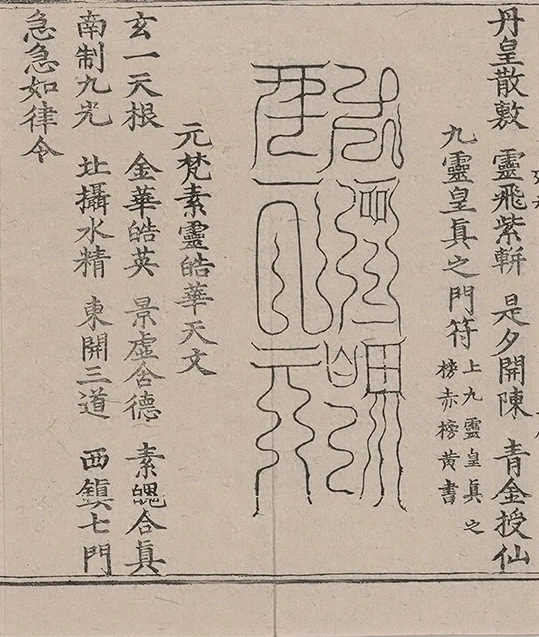 丹皇散敷 靈飛紫軿 是夕開陳 青金授仙
九靈皇眞之門符 上九靈皇眞之
榜赤榜黄書
元梵素靈皓華天文
玄一天根 金華皓英 景虛含德 素魄合眞
南制九光 北攝水精 東開三道 西鎮七門
急急如律令